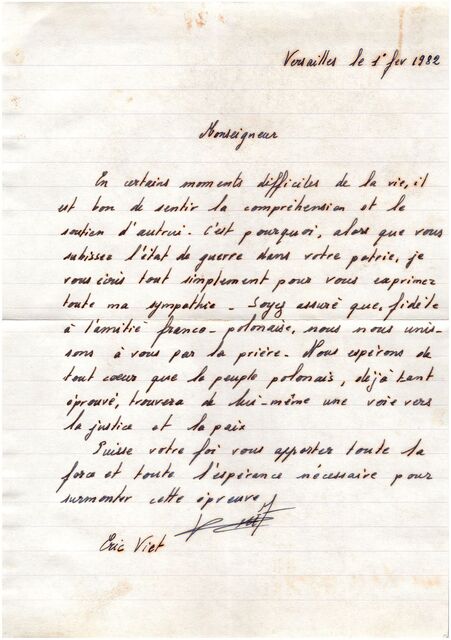 Versailles le 1° fev 1982
Monseigneur
En certains moments difficiles de la vie, il
est bon de sentir la compréhension et le
soutien d'autrui. C'est pourquoi, alors que vous
subissez l'état de guerre dans votre patrie, je
vous écris tout simplement pour vous exprimez
toute ma sympathie - Soyez assuré que, fidèle
à l'amitié franco-polonaise, nous nous unis-
sons à vous par la prière - Nous espérons de
tout coeur que le peuple polonais, déjà tant
éprouvé, trouvera de lui-même une voie vers
la justice et la paix
Puisse votre foi vous apporter toute la
force et toute l'espérance nécessaire pour
surmonter cette épreuve
Eric Viet